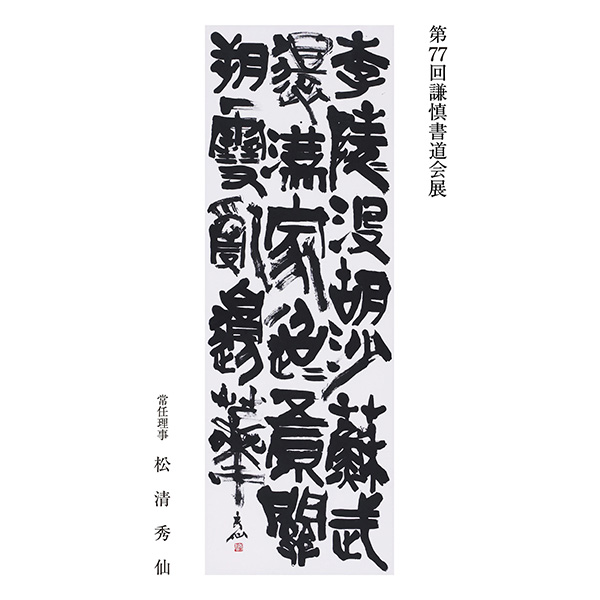 第77回謙慎書道会展
李陵没胡沙蘇武
還漢家迢々五原關
朔雪亂邊華
秀仙
常任理事 松清秀仙